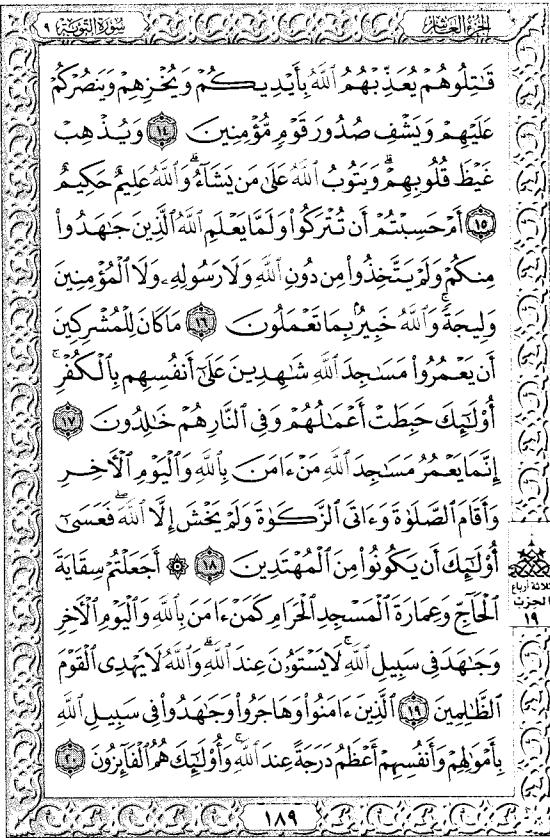 الجزء العاشر
سورة التوبة ٩
قَٰتِلُوهُمْ يُعَذِّبْهُمُ ٱللَّهُ بِأَيْدِيكُمْ وَيُخْزِهِمْ وَيَنصُرْكُمْ
عَلَيْهِمْ وَيَشْفِ صُدُورَ قَوْمٍ مُّؤْمِنِينَ ١٤ وَيُذْهِبْ
غَيْظَ قُلُوبِهِمْ ۗ وَيَتُوبُ ٱللَّهُ عَلَىٰ مَن يَشَآءُ ۗ وَٱللَّهُ عَلِيمٌ حَكِيمٌ
١٥ أَمْ حَسِبْتُمْ أَن تُتْرَكُوا۟ وَلَمَّا يَعْلَمِ ٱللَّهُ ٱلَّذِينَ جَٰهَدُوا۟
مِنكُمْ وَلَمْ يَتَّخِذُوا۟ مِن دُونِ ٱللَّهِ وَلَا رَسُولِهِۦ وَلَا ٱلْمُؤْمِنِينَ
وَلِيجَةً ۚ وَٱللَّهُ خَبِيرٌۢ بِمَا تَعْمَلُونَ ١٦ مَا كَانَ لِلْمُشْرِكِينَ
أَن يَعْمُرُوا۟ مَسَٰجِدَ ٱللَّهِ شَٰهِدِينَ عَلَىٰٓ أَنفُسِهِم بِٱلْكُفْرِ ۚ
أُو۟لَٰٓئِكَ حَبِطَتْ أَعْمَٰلُهُمْ وَفِى ٱلنَّارِ هُمْ خَٰلِدُونَ ١٧
إِنَّمَا يَعْمُرُ مَسَٰجِدَ ٱللَّهِ مَنْ ءَامَنَ بِٱللَّهِ وَٱلْيَوْمِ ٱلْءَاخِرِ
وَأَقَامَ ٱلصَّلَوٰةَ وَءَاتَى ٱلزَّكَوٰةَ وَلَمْ يَخْشَ إِلَّا ٱللَّهَ ۖ فَعَسَىٰٓ
أُو۟لَٰٓئِكَ أَن يَكُونُوا۟ مِنَ ٱلْمُهْتَدِينَ ١٨ ۞ أَجَعَلْتُمْ سِقَايَةَ
ٱلْحَآجِّ وَعِمَارَةَ ٱلْمَسْجِدِ ٱلْحَرَامِ كَمَنْ ءَامَنَ بِٱللَّهِ وَٱلْيَوْمِ ٱلْءَاخِرِ
وَجَٰهَدَ فِى سَبِيلِ ٱللَّهِ ۚ لَا يَسْتَوُۥنَ عِندَ ٱللَّهِ ۗ وَٱللَّهُ لَا يَهْدِى ٱلْقَوْمَ
ٱلظَّٰلِمِينَ ١٩ ٱلَّذِينَ ءَامَنُوا۟ وَهَاجَرُوا۟ وَجَٰهَدُوا۟ فِى سَبِيلِ ٱللَّهِ
بِأَمْوَٰلِهِمْ وَأَنفُسِهِمْ أَعْظَمُ دَرَجَةً عِندَ ٱللَّهِ ۚ وَأُو۟لَٰٓئِكَ هُمُ ٱلْفَآئِزُونَ ٢٠
ثلاثة أرباع
الحزب
١٩
١٨٩